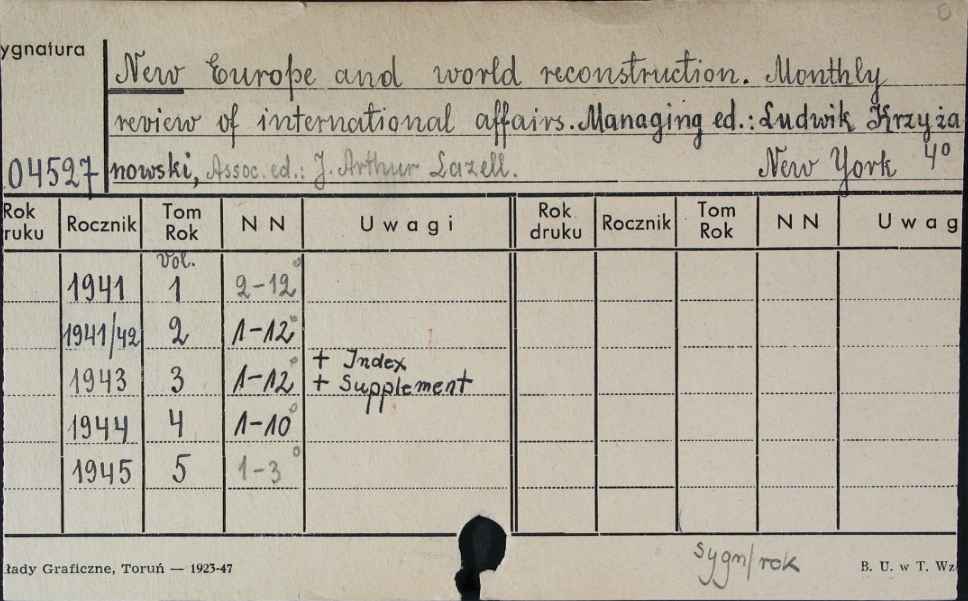 ygnatura
New Europe and world reconstruction. Monthly
review of international affairs. Managing ed.: Ludwik Krzyża
04527 nowski, Assoc. ed.: J. Arthur Lazell. New York 4°
Rok ruku Rocznik Tom Rok N N Uwagi Rok druku Rocznik Tom Rok N N Uwag
Vol.
1941 1 2-12°
1941/42 2 1-12°
+ Index
1943 3 1-12° + Supplement
1944 4 1-10°
1945 5 1-3°
sygn/rok
kłady Graficzne, Toruń — 1923-47 B. U. w T. Wz